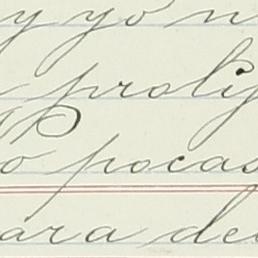 y yo n
prolij
o pocas
ara de